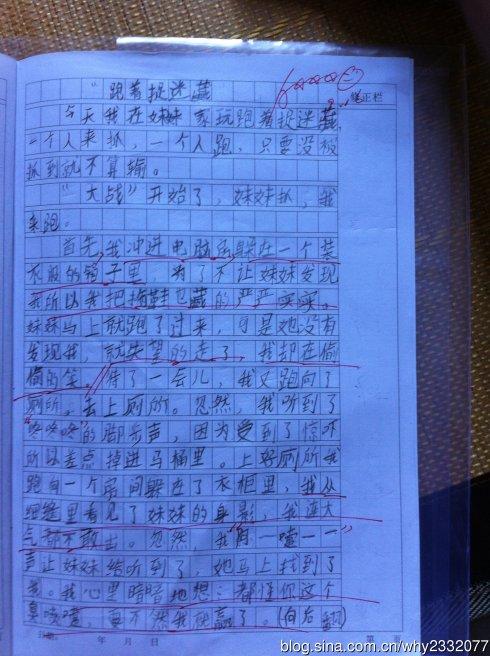 "跑着捉迷藏
修正栏
今天我在妹妹家玩跑着捉迷藏,
一个人来抓,一个人跑,只要没被
抓到就不算输。
"大战"开始了,妹妹抓,我
来跑。
首先,我冲进电脑房躲在一个装
衣服的箱子里,为了不让妹妹发现
我所以我把拖鞋也藏的严严实实。
妹妹马上就跑了过来,可是她没有
发现我,就失望的走了,我却在偷
偷的笑。待了一会儿,我又跑向了
厕所,去上厕所。忽然,我听到了
"咚咚咚"的脚步声,因为受到了惊吓
所以差点掉进马桶里。上好厕所我
跑向一个房间躲在了衣柜里,我从
细缝里看见了妹妹的身影,我连大
气都不敢出。忽然,我用一嚏一一"
声让妹妹给听到了,她马上找到了
我。我心里暗暗地想:都怪你这个
臭喷嚏,要不然我就赢了。(向右翻)
年 月 日
第 页
blog.sina.com.cn/why2332077